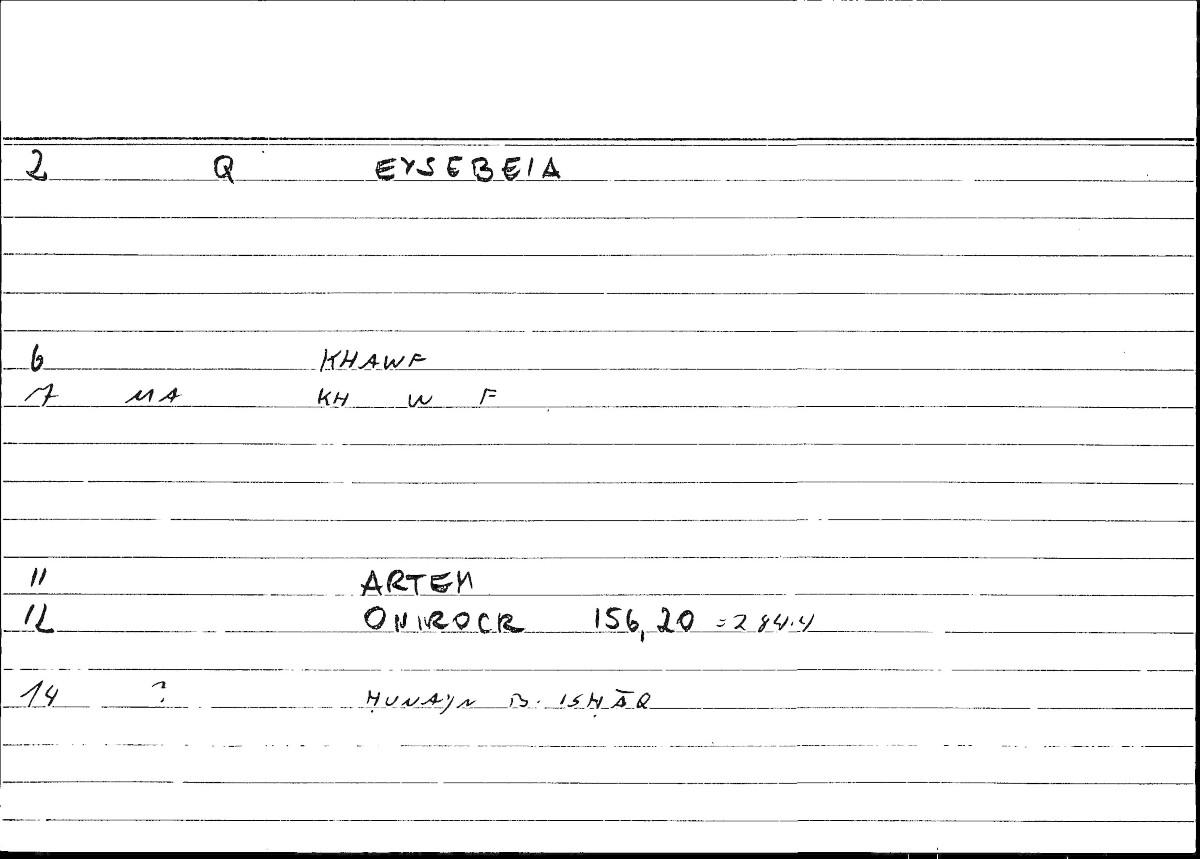 2 Q EYSEBEIA
6 KHAWF
7 MA KH W F
11 ARTEM
12 ONIROCR 156,20 =284.4
14 ? ḤUNAYN B. ISḤĀQ